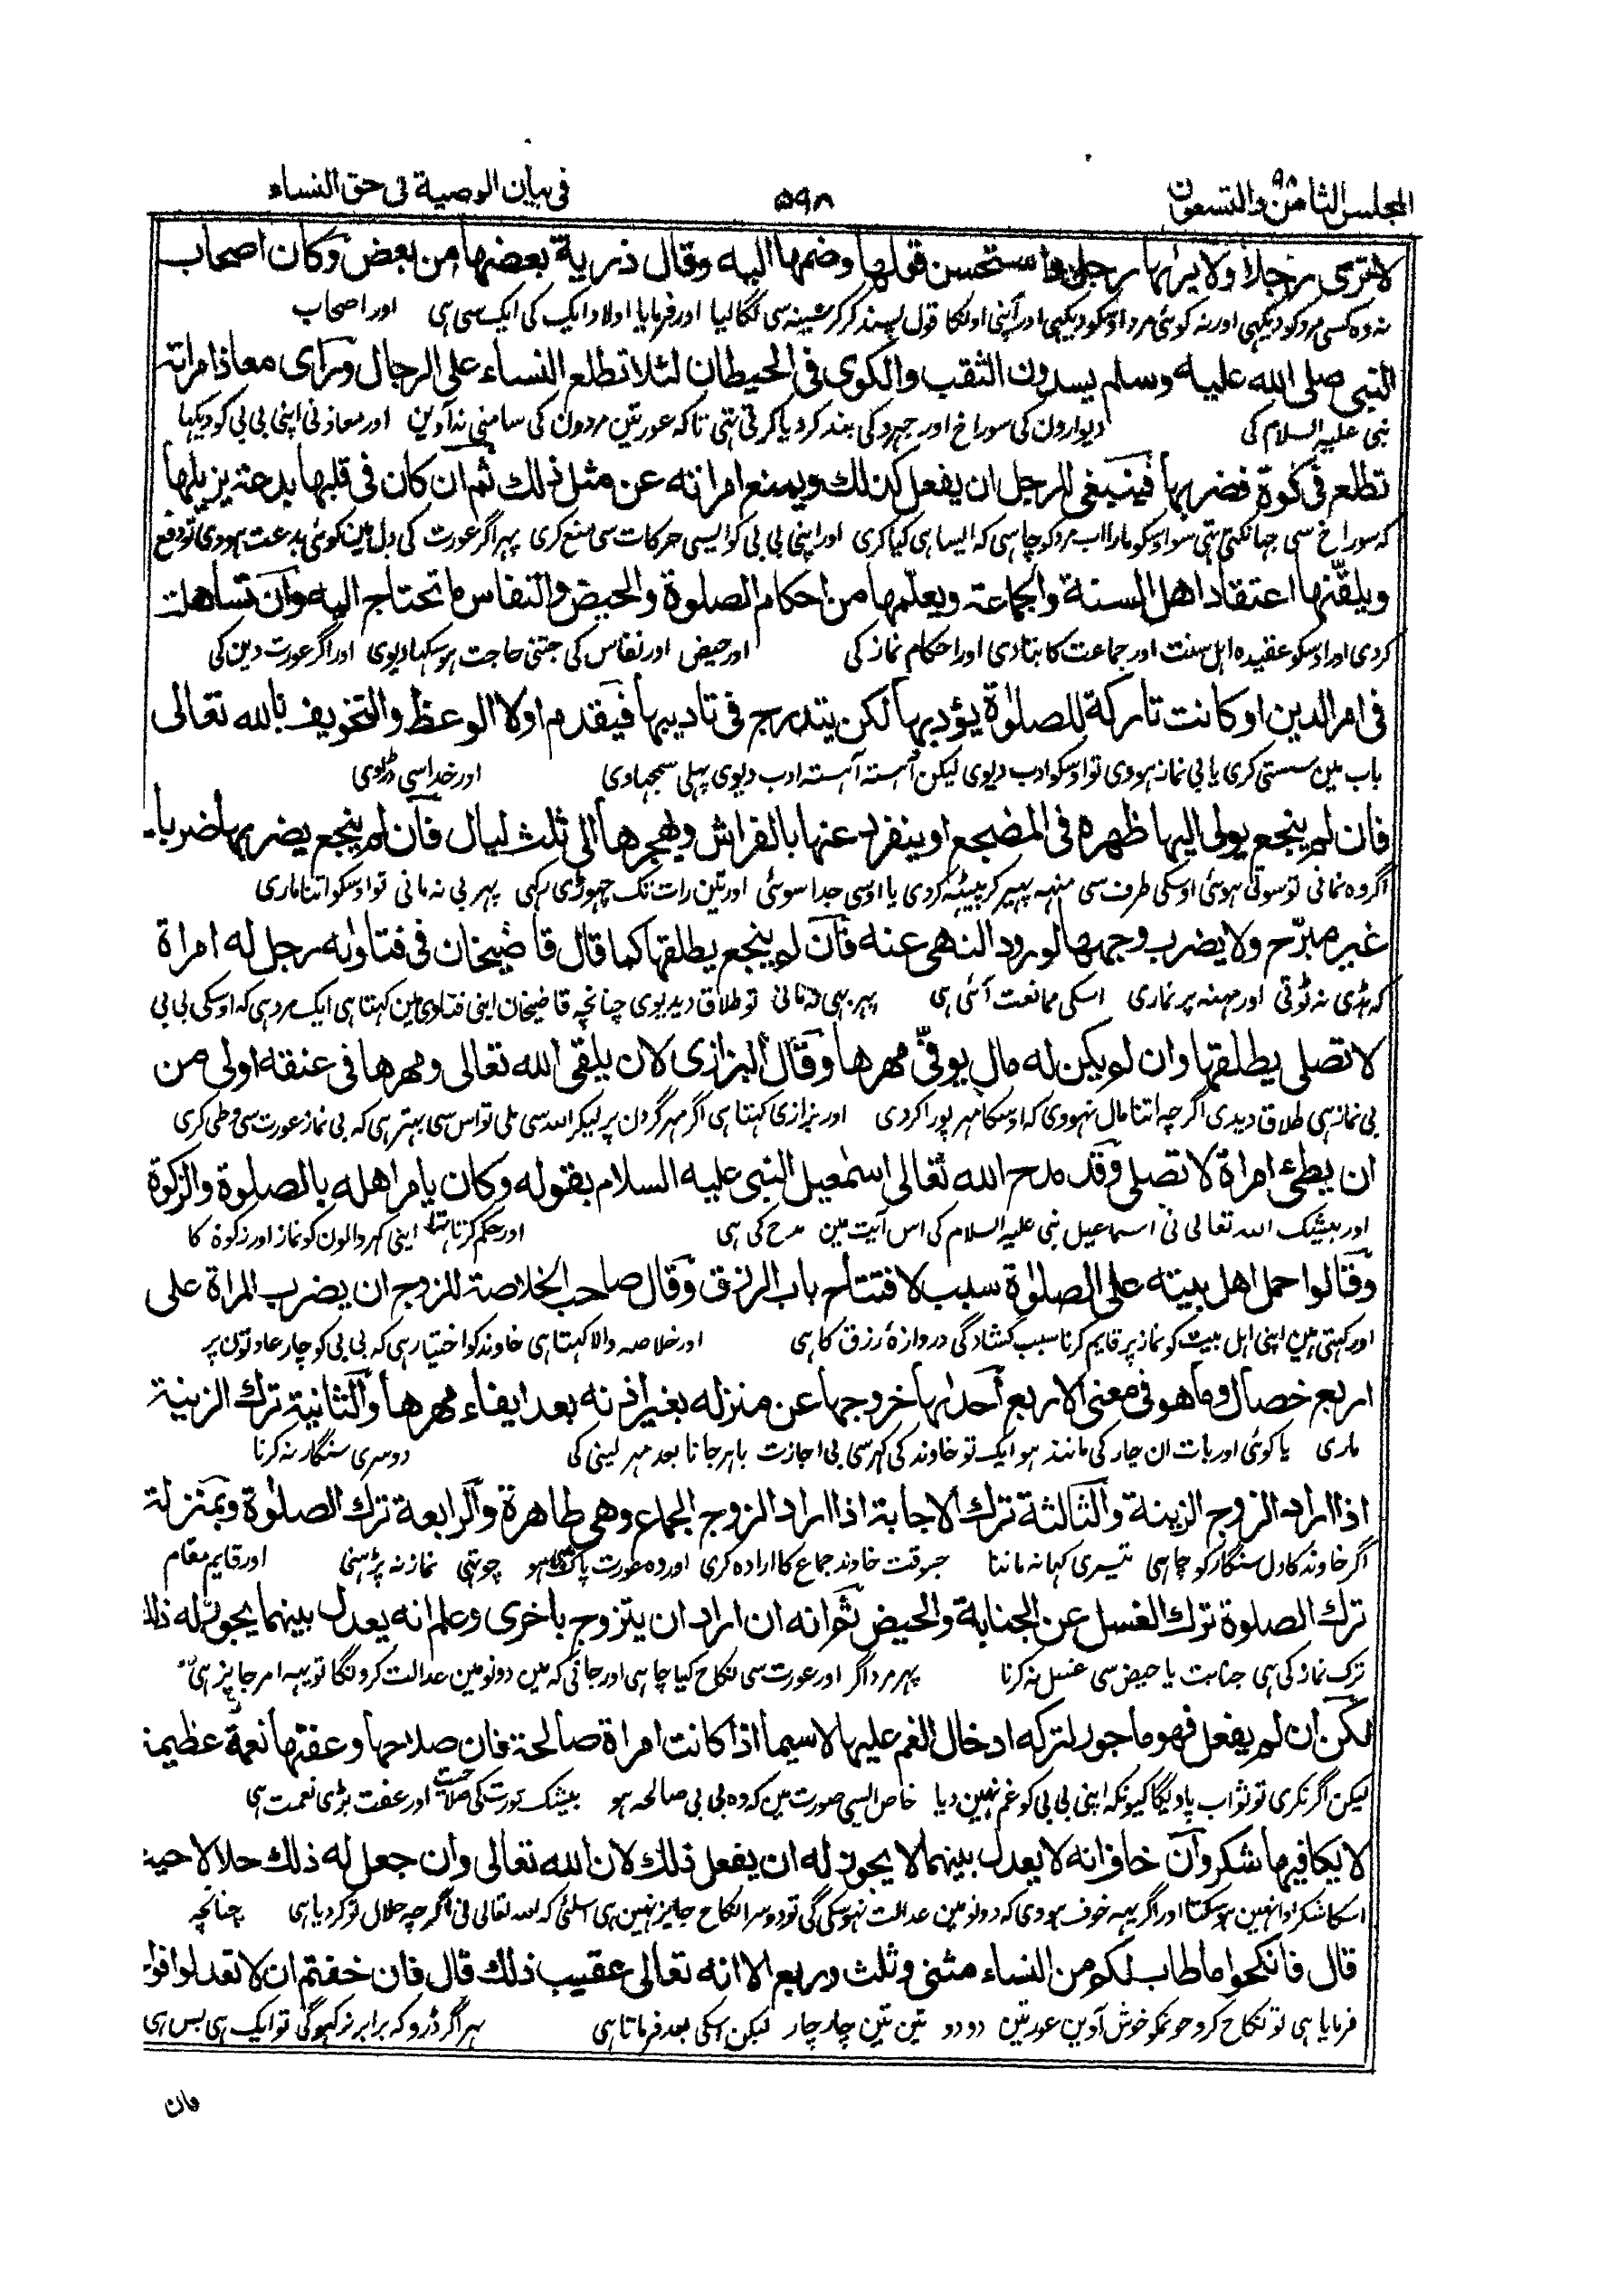 المجلس الثامن والتسعون ٩٨
٥٩٨
فى بيان الوصية فى حق النساء
لا ترى رجلا ولا يراها رجل واستحسن قولها وضمها اليه وقال ذرية بعضها من بعض وكان اصحاب
نہ وہ کسی مرد کو دیکھی اور نہ کوئی مرد اوسکو دیکھی اور آپنی اونکا قول پسند کرکر سینہ سی لگا لیا اور فرمایا اولاد ایک کی ایک سی ہی اور اصحاب
النبى صلى الله عليه وسلم يسدون الثقب والكوى فى الحيطان لئلا تطلع النساء على الرجال ورأى معاذ امراته
نبی علیہ السلام کی دیوارون کی سوراخ اور جہروکی بند کردیا کرتی تہی تاکہ عورتین مردون کی سامنی نہ آوین اور معاذ نی اپنی بی بی کو دیکہا
تطلع فى كوة فضربها فينبغى للرجل ان يفعل كذلك ويمنع امراته عن مثل ذلك ثم ان كان فى قلبها بدعة يزيلها
کہ سوراخ سی جہانکتی تہی سو اوسکو مارا اب مرد کو چاہیی کہ ایسا ہی کیا کری اور اپنی بی بی کو ایسی حرکات سی منع کری پہر اگر عورت کی دل مین کوئی بدعت ہووی تو دفع
ويلقنها اعتقاد اهل السنة والجماعة ويعلمها من احكام الصلوة والحيض والنفاس ما تحتاج اليه وان تساهلت
کردی اور اوسکو عقیدہ اہل سنت اور جماعت کا بتادی اور احکام نماز کی اور حیض اور نفاس کی جتنی حاجت ہو سکہادیوی اور اگر عورت دین کی
فى امر الدين او كانت تاركة للصلوة يؤدبها لكن يتدرج فى تاديبها فيقدم اولا الوعظ والتخويف بالله تعالى
باب مین سستی کری یا بی نماز ہووی تو اوسکو ادب دیوی لیکن آہستہ آہستہ ادب دیوی پہلی سمجہاوی اور خدا سی ڈراوی
فان لم ينجع يولى اليها ظهره فى المضجع او ينفرد عنها بالفراش ويهجرها الى ثلث ليال فان لم ينجع يضربها ضربا
اگر وہ نمانی تو سوتی ہوئی اوسکی طرف سی منہہ پہیر کر پیٹہہ کردی یا اوسی جدا سوئی اور تین رات تک چہوڑی رکہی پہر بی نہ مانی تو اوسکو اتنا ماری
غير مبرّح ولا يضرب وجهها لورود النهى عنه فان لم ينجع يطلقها كما قال قاضيخان فى فتاواه رجل له امراة
کہ ہڈی نہ ٹوٹی اور مہنہ پر نماری اسکی ممانعت آئی ہی پہر بہی نہ مانی تو طلاق دیدیوی چنانچہ قاضیخان اپنی فتاوی مین کہتا ہی ایک مرد ہی کہ اوسکی بی بی
لا تصلى يطلقها وان لم يكن له مال يوفّى مهرها وقال البزازى لان يلقى الله تعالى ومهرها فى عنقه اولى من
بی نماز ہی طلاق دیدی اگرچہ اتنا مال نہووی کہ اوسکا مہر پورا کردی اور بزازی کہتا ہی اگر مہر گردن پر لیکر اللہ سی ملی تو اس سی بہتر ہی کہ بی نماز عورت سی وطی کری
ان يطئ امراة لا تصلى وقد مدح الله تعالى اسمعيل النبى عليه السلام بقوله وكان يامر اهله بالصلوة والزكوة
اور بیشک اللہ تعالی نی اسماعیل نبی علیہ السلام کی اس آیت مین مدح کی ہی اور حکم کرتا تہا اپنی گہر والون کو نماز اور زکوۃ کا
وقالوا حمل اهل بيته على الصلوة سبب لافتتاح باب الرزق وقال صاحب الخلاصة للزوج ان يضرب المراة على
اور کہتی ہین اپنی اہل بیت کو نماز پر قایم کرنا سبب کشادگی دروازۂ رزق کا ہی اور خلاصہ والا کہتا ہی خاوند کو اختیار ہی کہ بی بی کو چار عادتون پر
اربع خصال وما هو فى معنى الاربع احدٰها خروجها عن منزله بغير اذنه بعد ايفاء مهرها والثانية ترك الزينة
ماری یا کوئی اور بات ان چار کی مانند ہو ایک تو خاوند کی گہر سی بی اجازت باہر جانا بعد مہر لینی کی دوسری سنگار نہ کرنا
اذا اراد الزوج الزينة والثالثة ترك الاجابة اذا اراد الزوج الجماع وهى طاهرة والرابعة ترك الصلوة وبمنزلة
اگر خاوند کا دل سنگار کو چاہی تیسری کہا نہ ماننا جسوقت خاوند جماع کا ارادہ کری اور وہ عورت پاک ہو چوتہی نماز نہ پڑہنی اور قایم مقام
ترك الصلوة ترك الغسل عن الجنابة والحيض ثم انه ان اراد ان يتزوج باخرى وعلم انه يعدل بينهما يجوز له ذلك
ترک نماز کی ہی جنابت یا حیض سی غسل نہ کرنا پہر مرد اگر اور عورت سی نکاح کیا چاہی اور جانی کہ مین دونو مین عدالت کرونگا تو یہہ امر جایز ہی
لكن ان لم يفعل فهو ماجور لتركه ادخال الغم عليها لا سيما اذا كانت امراة صالحة فان صلاحها وعفتها نعمة عظيمة
لیکن اگر نکری تو ثواب پاویگا کیونکہ اپنی بی بی کو غم نہین دیا خاص ایسی صورت مین کہ وہ بی بی صالحہ ہو بیشک عورت کی صلاحیت اور عفت بڑی نعمت ہی
لا يكافيها شكر وان خاف انه لا يعدل بينهما لا يجوز له ان يفعل ذلك لان الله تعالى وان جعل له ذلك حلالا حيث
اسکا شکر ادا نہین ہو سکتا اور اگر یہہ خوف ہووی کہ دونو مین عدالت نہوسکی گی تو دوسرا نکاح جایز نہین ہی اسلئی کہ اللہ تعالی نی اگرچہ حلال تو کردیا ہی چنانچہ
قال فانكحوا ما طاب لكم من النساء مثنى وثلث وربع الا انه تعالى عقيب ذلك قال فان خفتم ان لا تعدلوا فوا
فرمایا ہی تو نکاح کرو جو تمکو خوش آوین عورتین دو دو تین تین چار چار لیکن اسکی بعد فرماتا ہی پہر اگر ڈرو کہ برابر نرکہوگی تو ایک ہی بس ہی